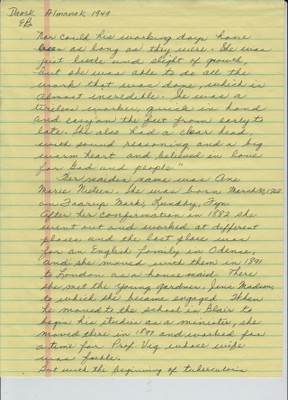 Dansk Almanak 1949
EB
Nor could his working days have
been as long as they were. She was
just little and slight of growth,
but she was able to do all the
work that was done, which is
almost incredible. She was a
tireless worker, quick in hand
and easy on the feet from early to
late. She also had a clear head,
with sound reasoning and a big
warm heart and believed in love
for God and people"
Her maiden name was Ane
Marie Nielsen. She was born March 30,
on Taarup Mark, Fyn
After her confirmation in 1882 she
went out and worked at different
places and the last place was
for an English family in Odense
and she moved with them in 1891
to London as a house maid. There
she met the young gardner, Jens Madsen,
to which she became engaged. When
he moved to the school in Blair to
begin his studies as a minister, she
moved there in 1897 and worked for
a time for Prof. Vig whose wife
was feeble.
But with the beginning of tuberculosis